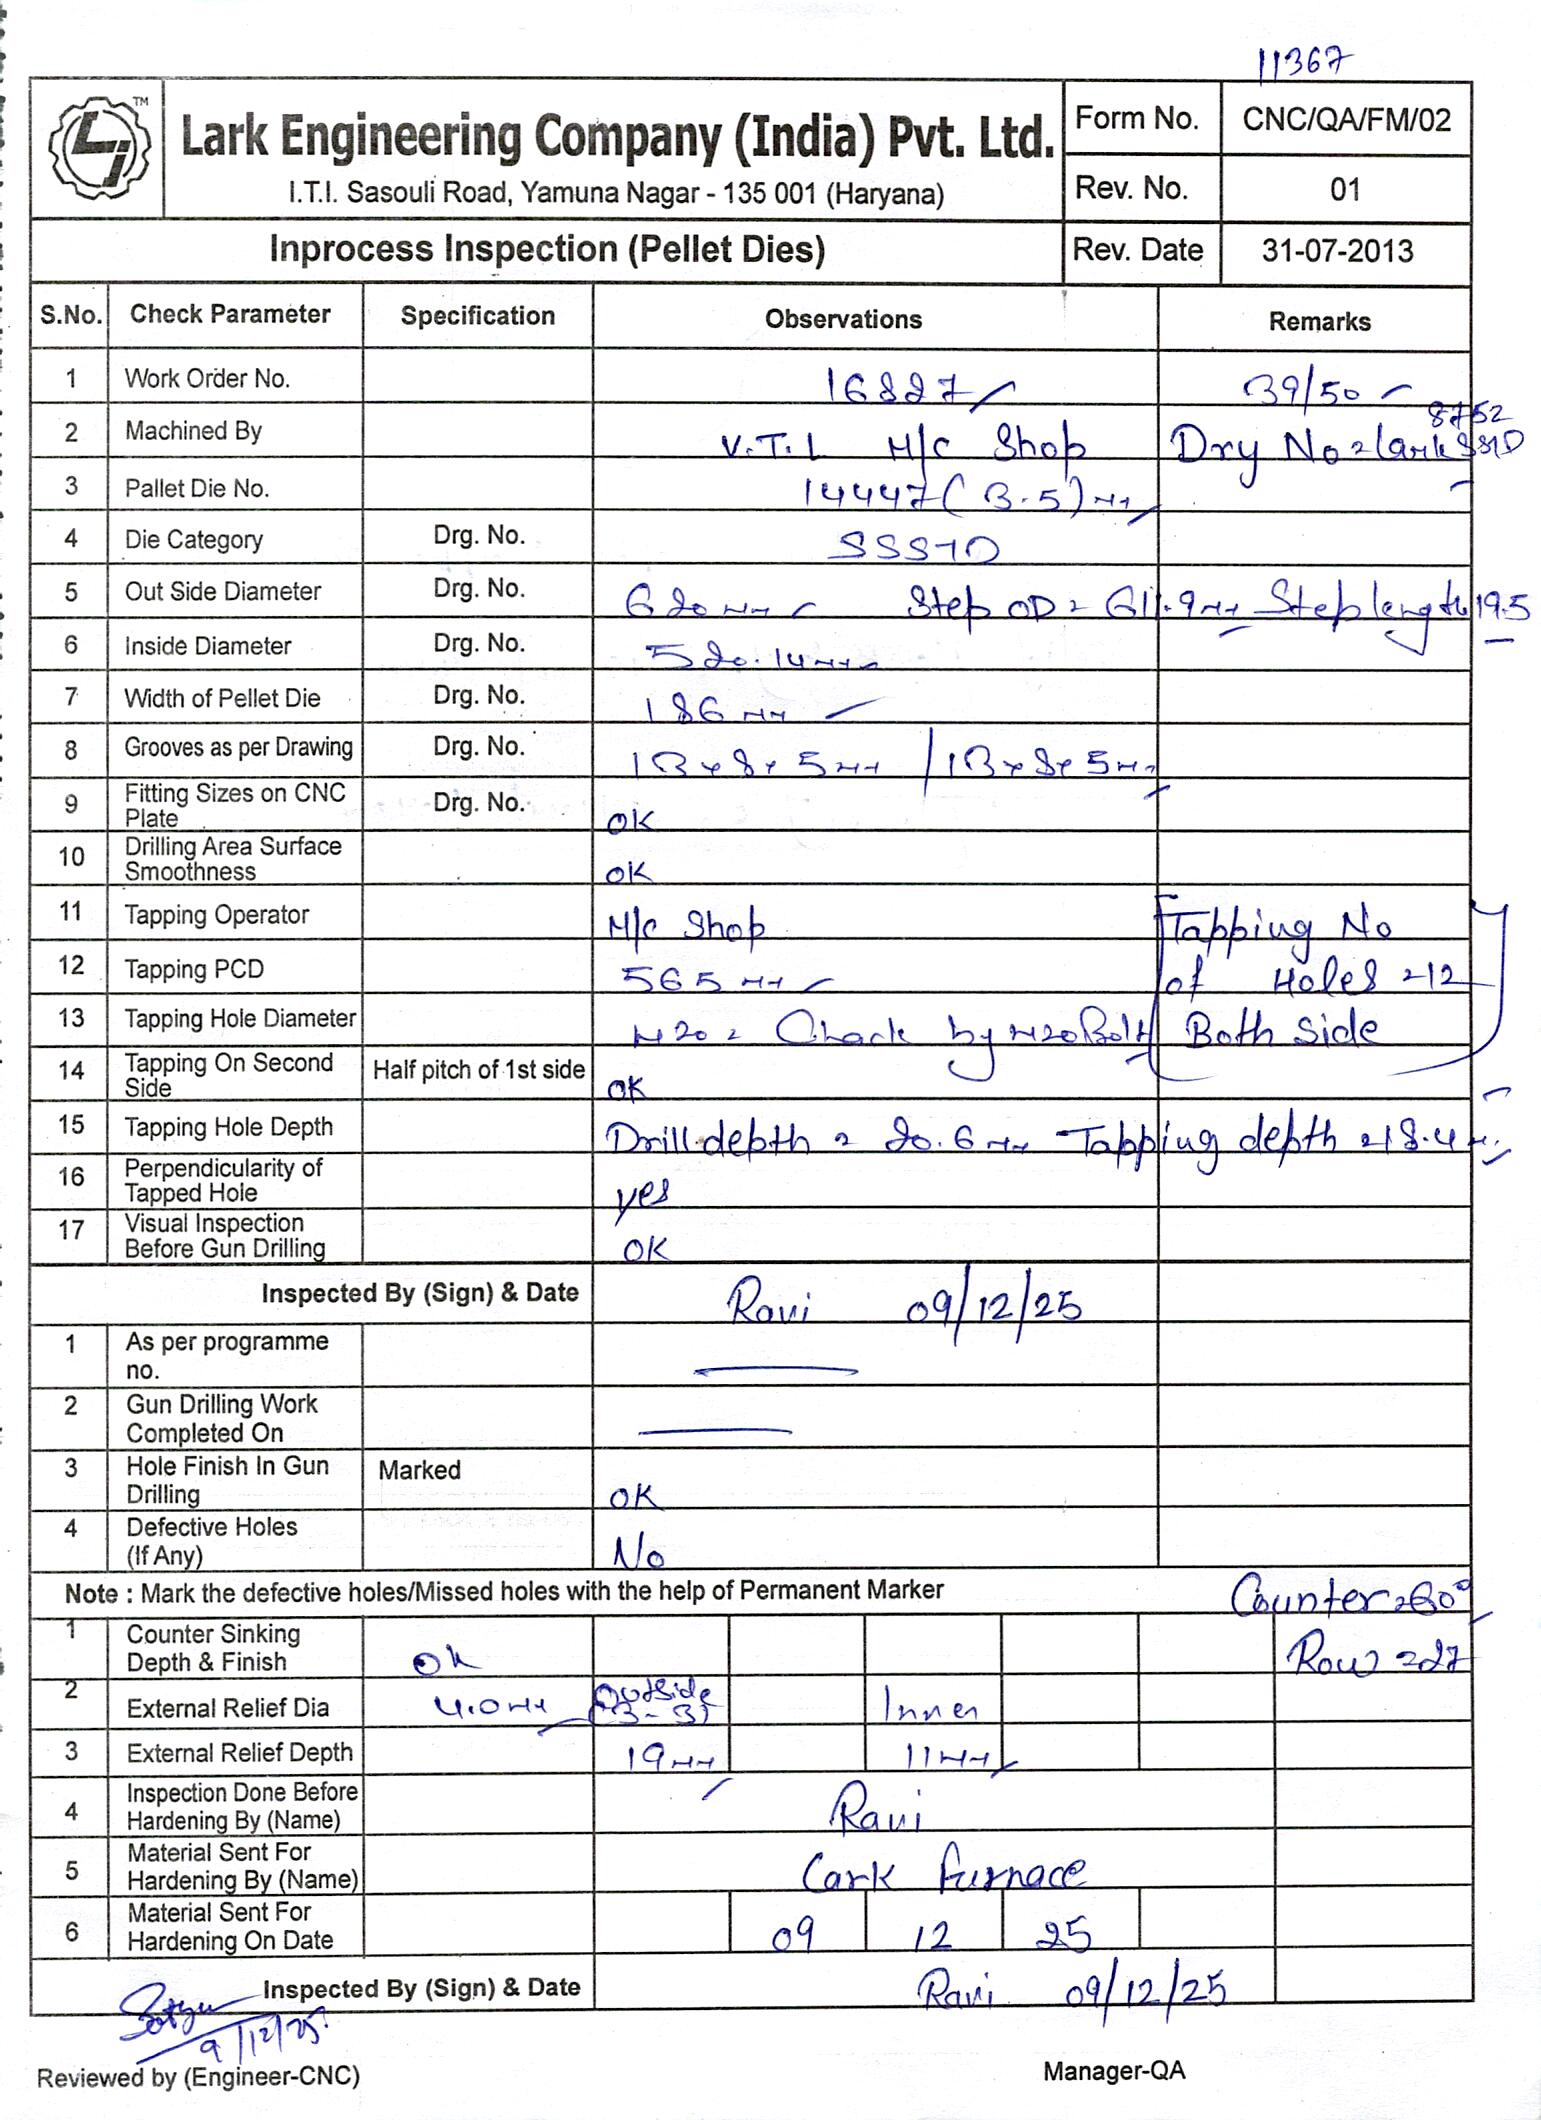 11367
TM
Lark Engineering Company (India) Pvt. Ltd.
I.T.I. Sasouli Road, Yamuna Nagar - 135 001 (Haryana)
Form No. CNC/QA/FM/02
Rev. No. 01
Inprocess Inspection (Pellet Dies) Rev. Date 31-07-2013
S.No. Check Parameter Specification Observations Remarks
1 Work Order No. 16827 39/50
8752
2 Machined By V.T.L M/c Shop Drg No = Lark SSTD
3 Pallet Die No. 14447 (3.5) mm
4 Die Category Drg. No. SSSTD
5 Out Side Diameter Drg. No. 620 mm Step OD = 611.9 mm Step length 19.5
6 Inside Diameter Drg. No. 520.14 mm
7 Width of Pellet Die Drg. No. 186 mm
8 Grooves as per Drawing Drg. No. 13 x 8 x 5 mm / 13 x 8 x 5 mm
9 Fitting Sizes on CNC Plate Drg. No. OK
10 Drilling Area Surface Smoothness OK
11 Tapping Operator M/c Shop Tapping No
12 Tapping PCD 565 mm of Holes = 12
13 Tapping Hole Diameter M20 = Chack by M20 Bolt Both Side
14 Tapping On Second Side Half pitch of 1st side OK
15 Tapping Hole Depth Drill depth = 20.6 mm Tapping depth = 18.4 mm
16 Perpendicularity of Tapped Hole yes
17 Visual Inspection Before Gun Drilling OK
Inspected By (Sign) & Date Ravi 09/12/25
1 As per programme no.
2 Gun Drilling Work Completed On
3 Hole Finish In Gun Drilling Marked OK
4 Defective Holes (If Any) No
Note : Mark the defective holes/Missed holes with the help of Permanent Marker Counter = 60°
1 Counter Sinking Depth & Finish Ok Row = 27
2 External Relief Dia 4.0 mm Outside 3-3 Inner
3 External Relief Depth 19 mm 11 mm
4 Inspection Done Before Hardening By (Name) Ravi
5 Material Sent For Hardening By (Name) Lark Furnace
6 Material Sent For Hardening On Date 09 12 25
Inspected By (Sign) & Date Ravi 09/12/25
9/12/25
Reviewed by (Engineer-CNC) Manager-QA